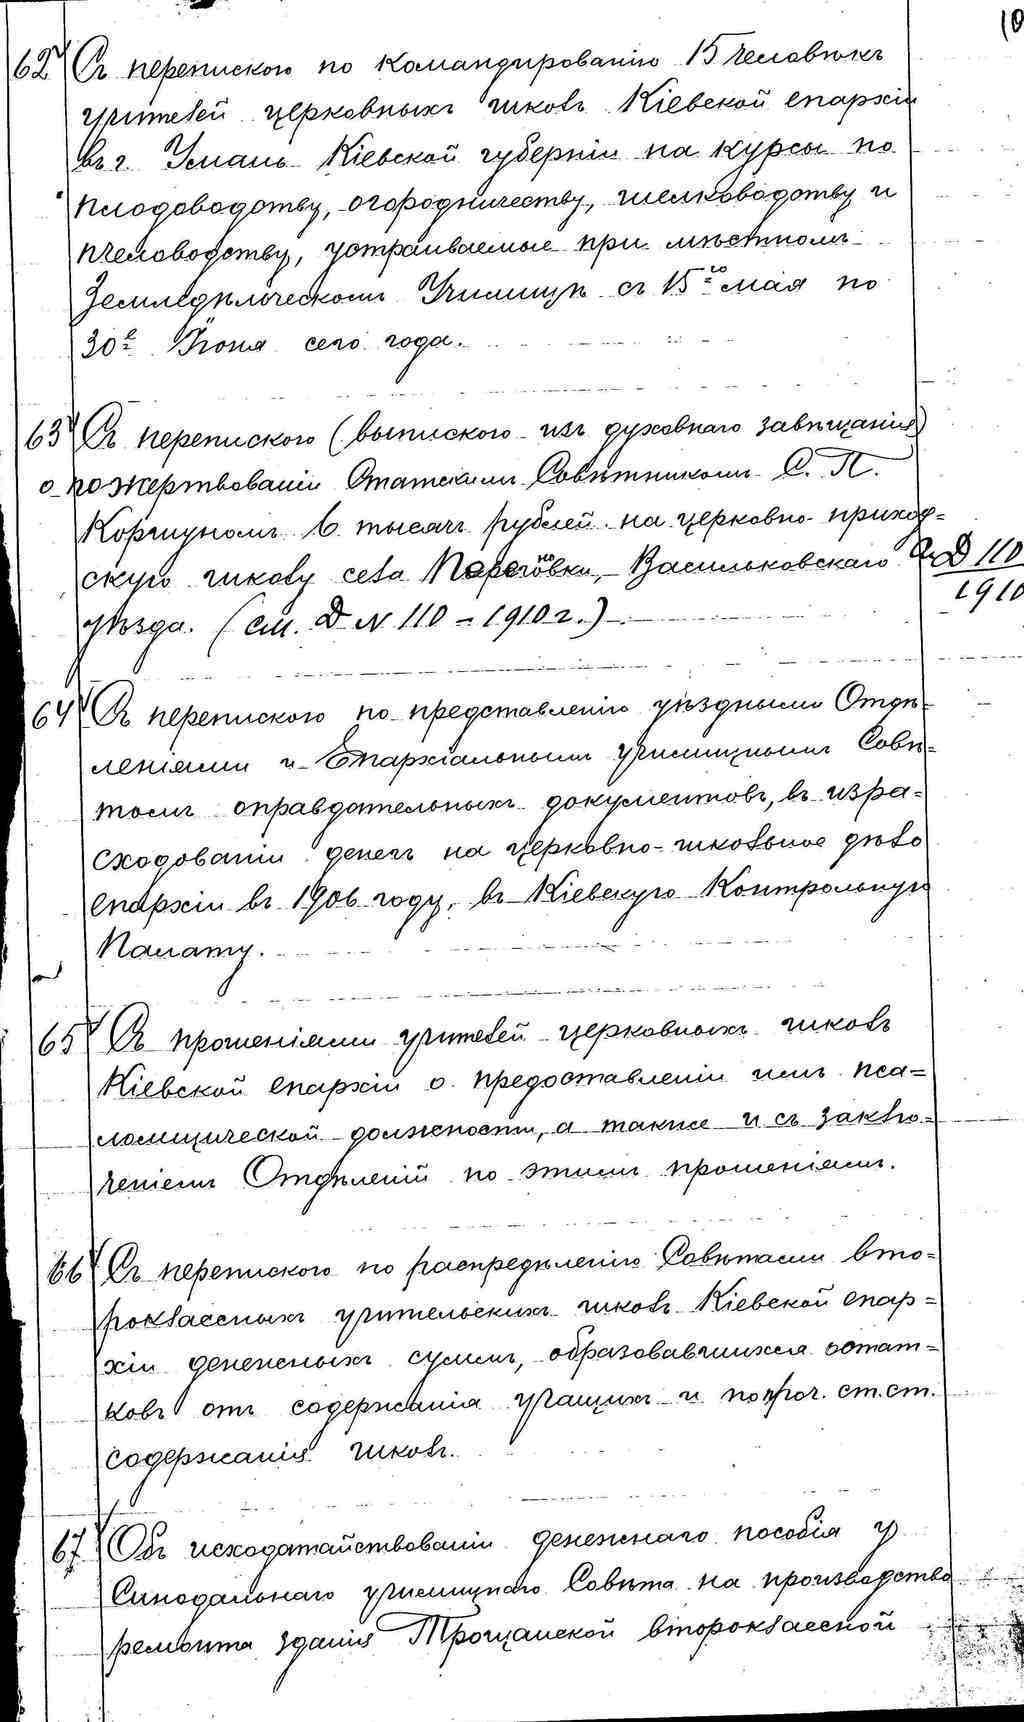 10
62 Съ перепискою по командированію 15 человѣкъ
учителей церковныхъ школъ Кіевской епархіи
въ г. Умань Кіевской губерніи на курсы по
плодоводству, огородничеству, шелководству и
пчеловодству, устраиваемые при мѣстномъ
Земледѣльческомъ Училищѣ съ 15го мая по
30е Іюня сего года.
63 Съ перепискою (выпискою изъ духовнаго завѣщанія)
о пожертвованіи Статскимъ Совѣтникомъ С. П.
Коршуномъ 6 тысячъ рублей на церковно-приход=
скую школу села Васильковскаго
уѣзда. (см. Д № 110 - 1910 г.)
Д 110
1910
64 Съ перепискою по представленію уѣздными Отдѣ=
леніями и Епархіальнымъ училищнымъ Совѣ=
томъ оправдательныхъ документовъ, въ израс=
сходованіи денегъ на церковно-школьное дѣло
епархіи въ 1906 году, въ Кіевскую Контрольную
Палату.
65 Съ прошеніями учителей церковныхъ школъ
Кіевской епархіи о предоставленіи имъ пса=
ломщической должности, а также и съ заклю=
ченіемъ Отдѣленій по этимъ прошеніямъ.
66 Съ перепискою по распредѣленію Совѣтами вто=
роклассныхъ учительскихъ школъ Кіевской епар=
хіи денежныхъ суммъ, образовавшихся остат=
ковъ отъ содержанія учащихъ и по проч. ст.ст.
содержанія школъ.
67 Объ исходатайствованіи денежнаго пособія у
Синодальнаго училищнаго Совѣта на производство
ремонта зданія Трощанской второклассной